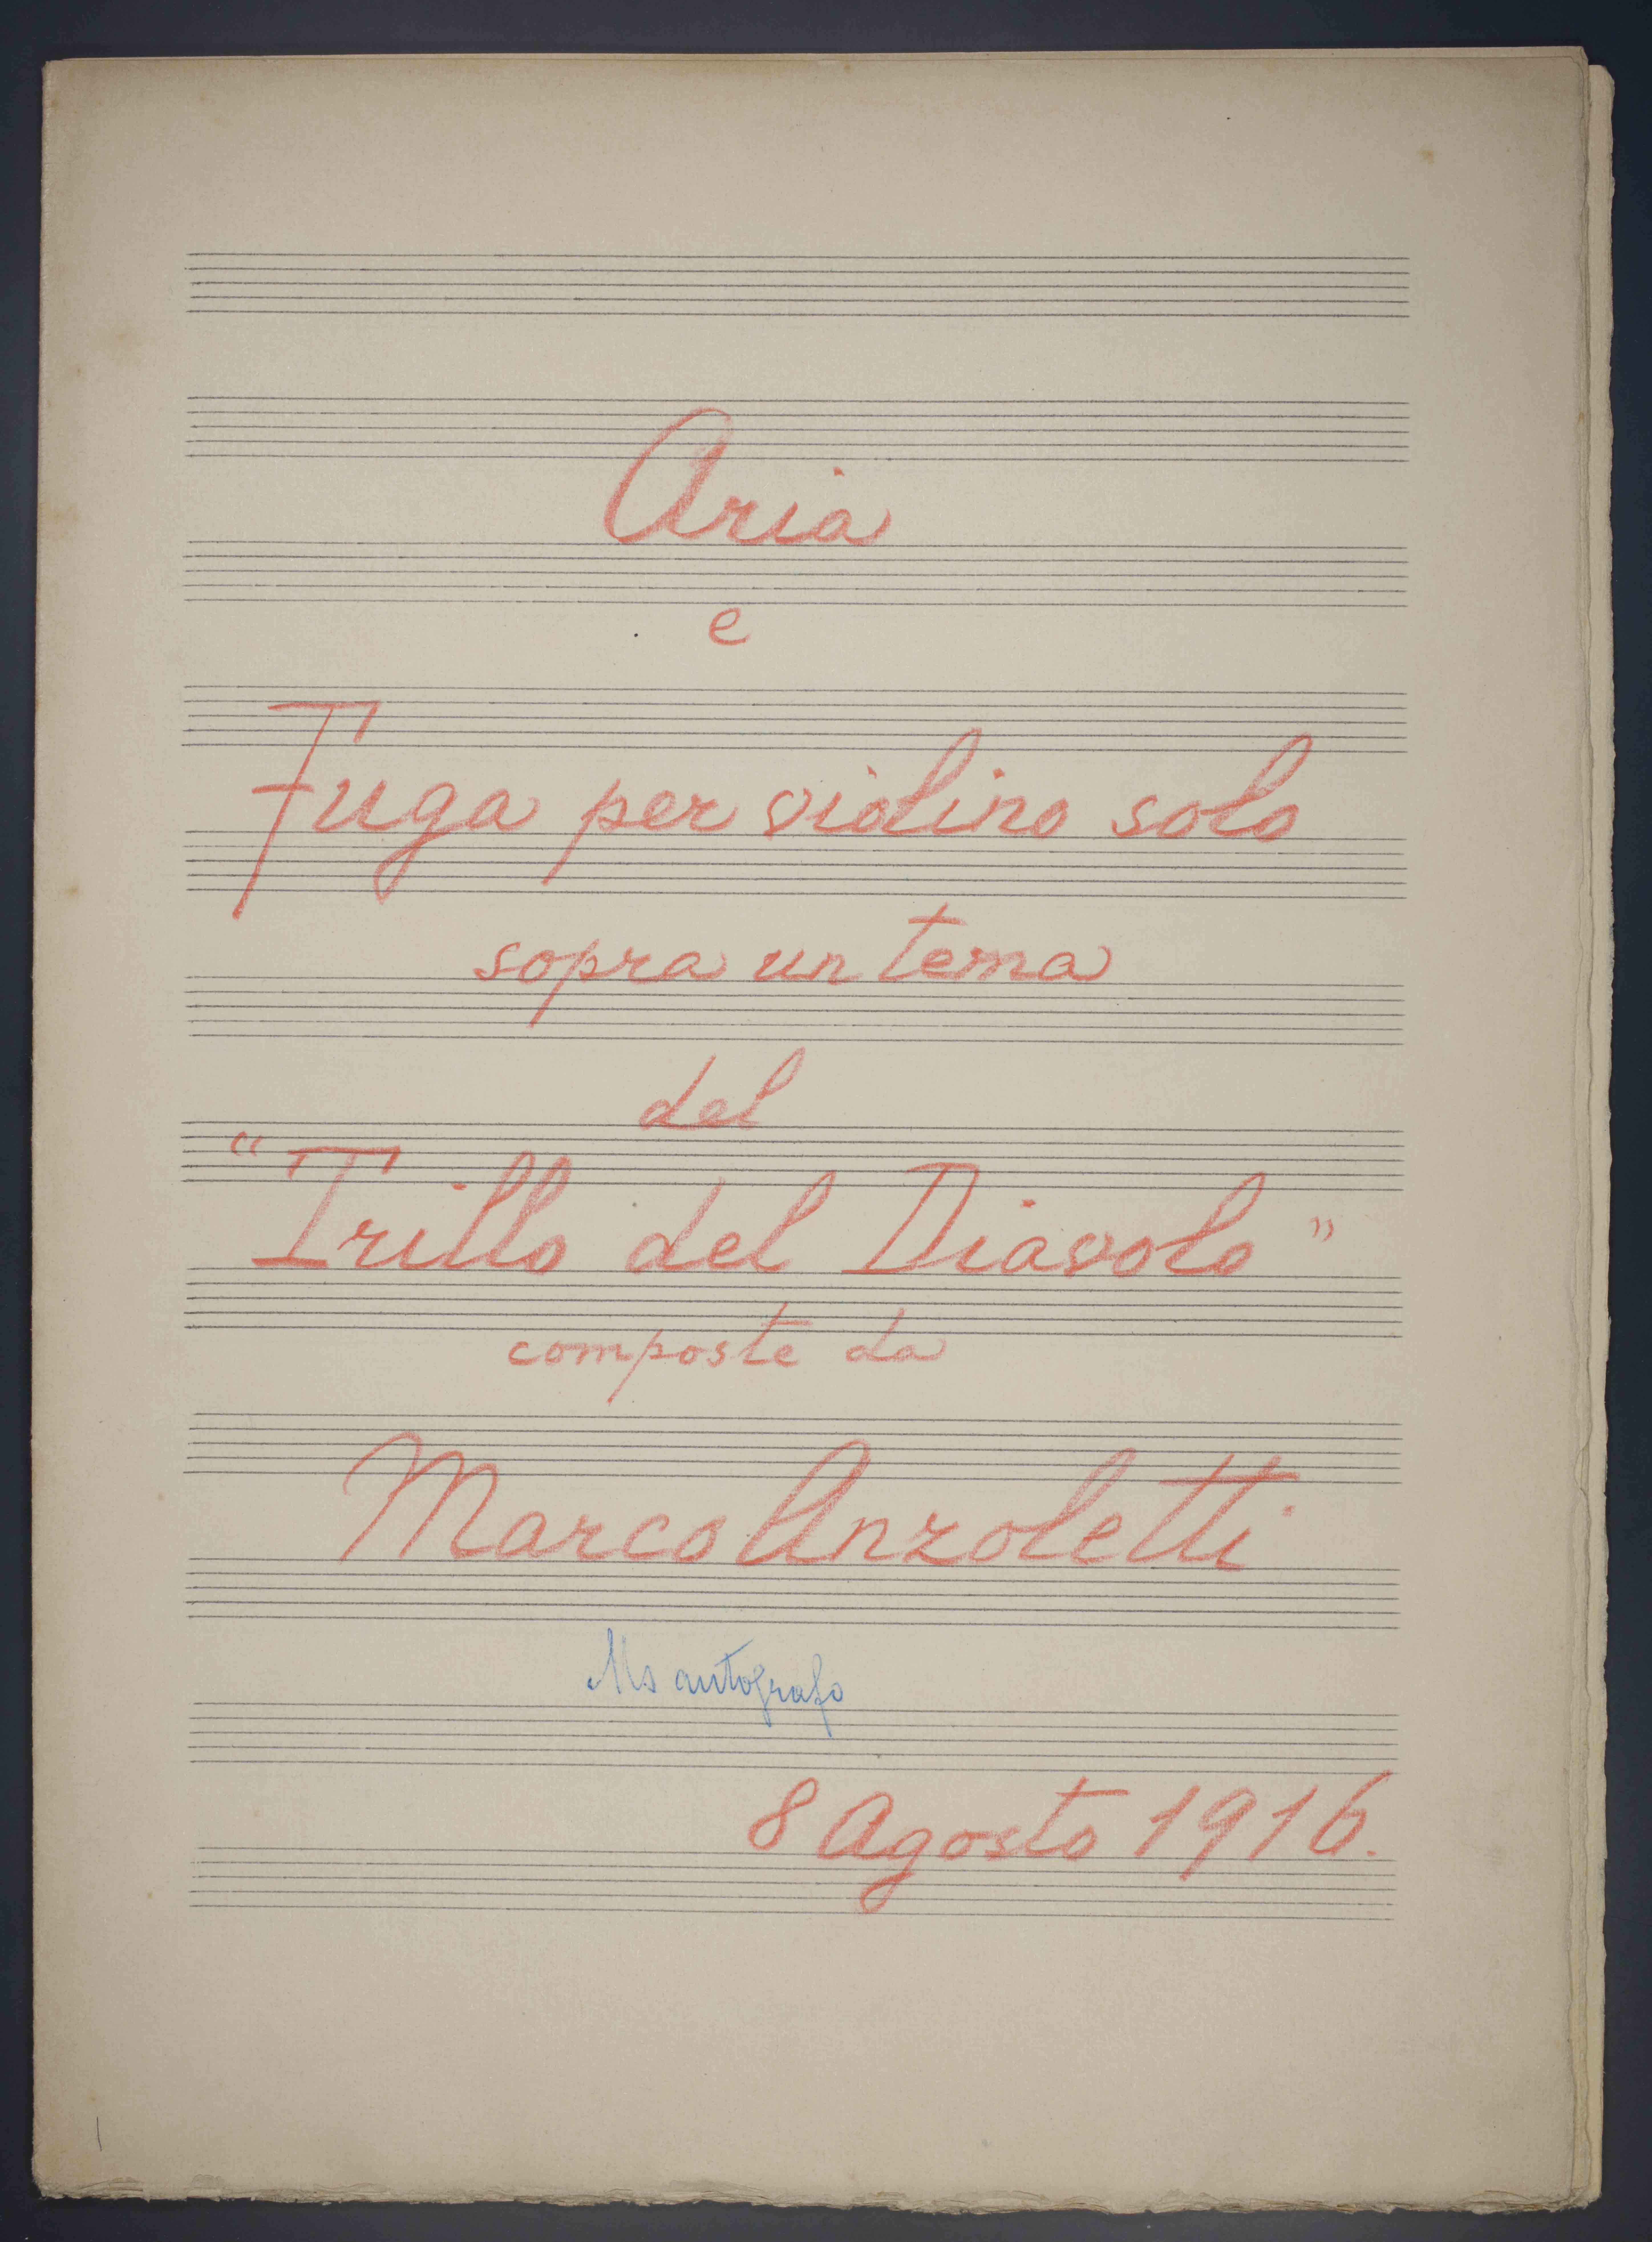 Aria
e
Fuga per violino solo
sopra un tema
del
"Trillo del Diavolo"
composte da
Marco Anzoletti
Ms autografo
8 Agosto 1916.